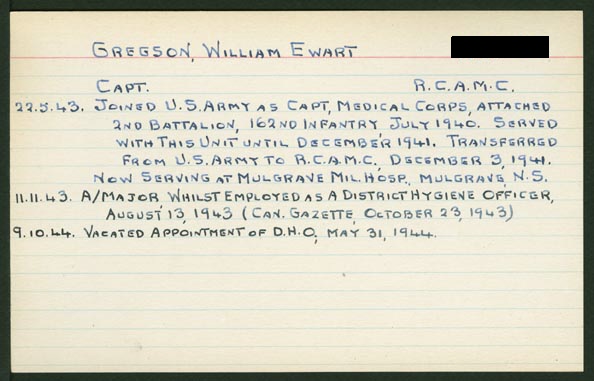 GREGSON, WILLIAM EWART
CAPT. R.C.A.M.C.
22.5.43. JOINED U.S. ARMY AS CAPT, MEDICAL CORPS, ATTACHED
2ND BATTALION, 162ND INFANTRY, JULY 1940. SERVED
WITH THIS UNIT UNTIL DECEMBER, 1941. TRANSFERRED
FROM U.S. ARMY TO R.C.A.M.C. DECEMBER 3, 1941.
NOW SERVING AT MULGRAVE MIL. HOSP., MULGRAVE, N.S.
11.11.43. A/MAJOR WHILST EMPLOYED AS A DISTRICT HYGIENE OFFICER,
AUGUST 13, 1943 (CAN. GAZETTE, OCTOBER 23, 1943)
9.10.44. VACATED APPOINTMENT OF D.H.O, MAY 31, 1944.